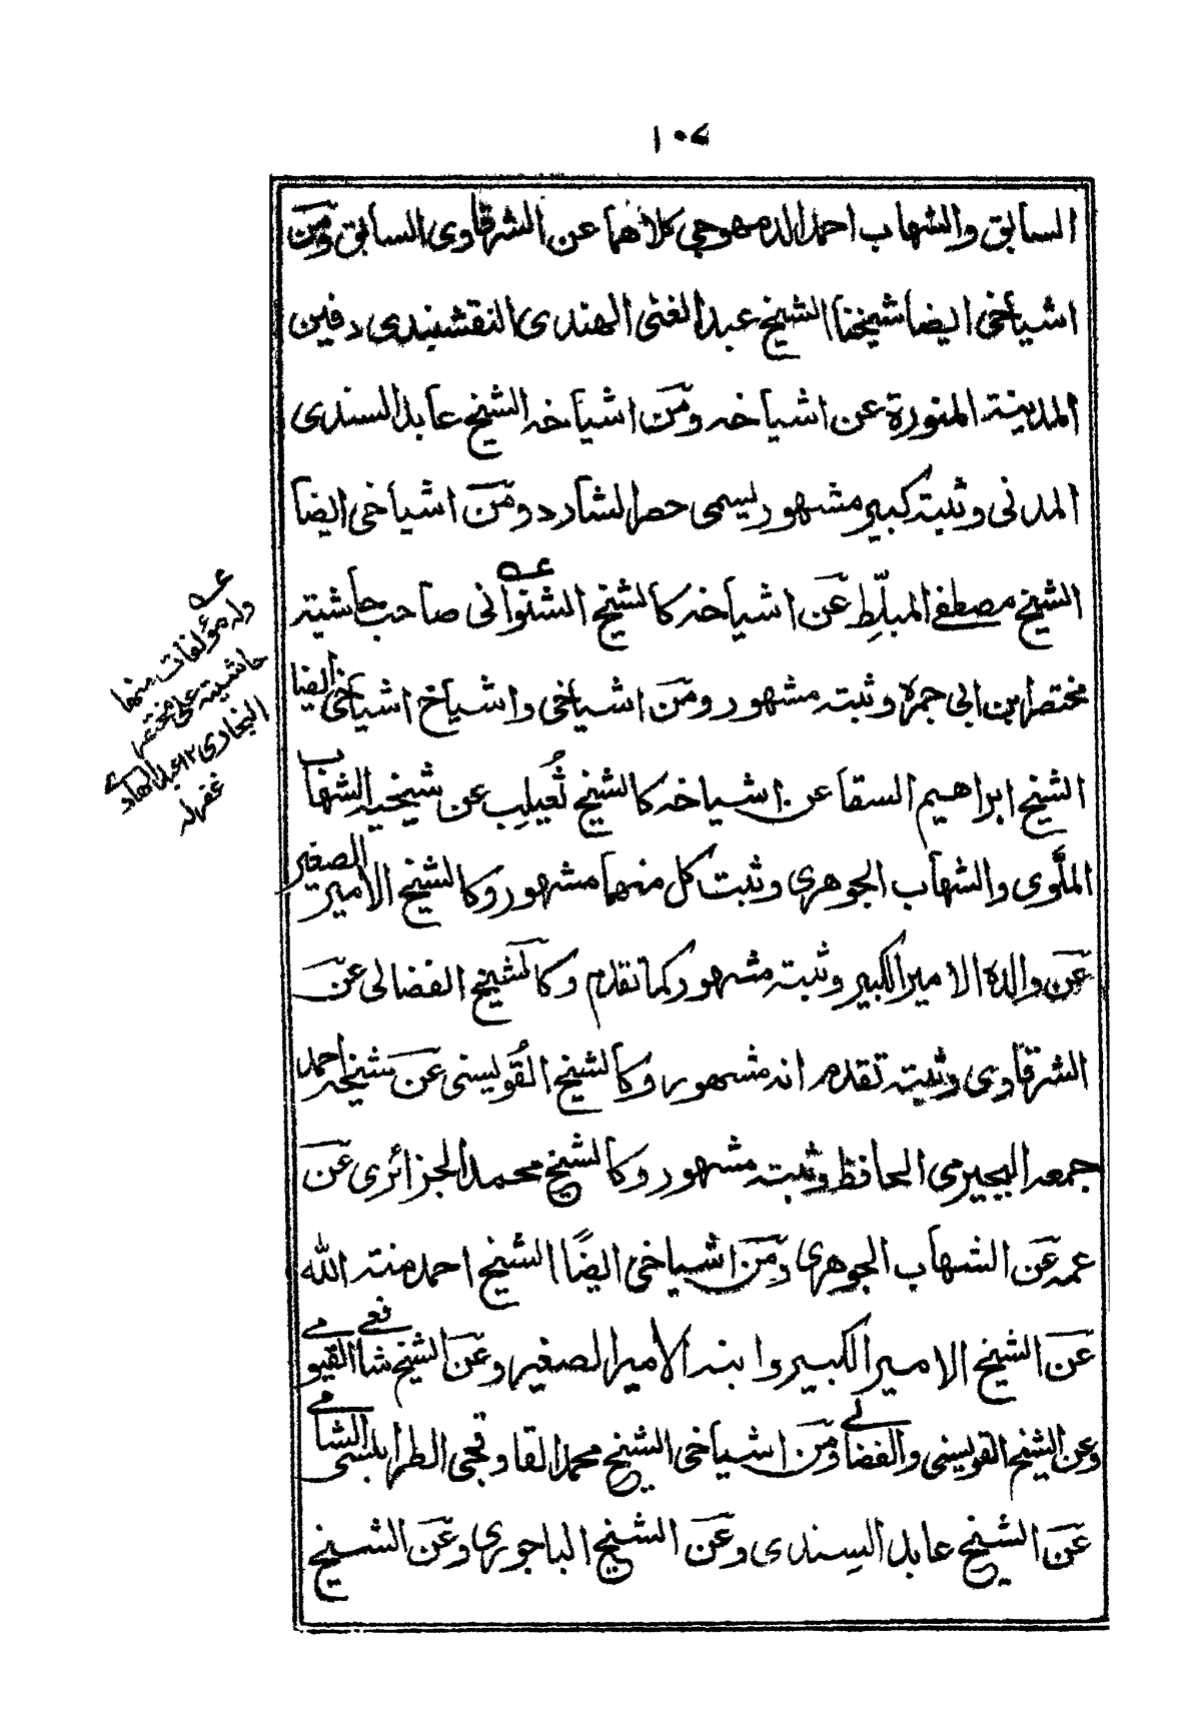 ١٠٧
السابق والشهاب احمد الدمهوجي كلاهما عن الشرقاوى السابق ومن
اشياخى ايضا شيخنا الشيخ عبد الغنى الهندى النقشبندى دفين
المدينة المنورة عن اشياخه ومن اشياخه الشيخ عابد السندى
المدنى وثبته كبير مشهور يسمى حصر الشارد ومن اشياخى ايضا
الشيخ مصطفے المبلّط عن اشياخه كالشيخ الشنوانى صاحب حاشية
مختصر ابن ابى جمرة وثبته مشهور ومن اشياخى واشياخ اشياخى ايضا
الشيخ ابراهيم السقا عن اشياخه كالشيخ ثُعيلِب عن شيخيه الشهاب
الملَّوى والشهاب الجوهرى وثبت كل منهما مشهور وكالشيخ الامير الصغير
عن والده الامير الكبير وثبته مشهور كما تقدم وكالشيخ الفضالى عن
الشرقاوى وثبته تقدم انه مشهور وكالشيخ القُويسنى عن شيخه احمد
جمعه البجيرمى الحافظ وثبته مشهور وكالشيخ محمد الجزائرى عن
عمه عن الشهاب الجوهرى ومن اشياخى ايضًا الشيخ احمد منة الله
عن الشيخ الامير الكبير وابنه الامير الصغير وعن الشيخ شافعے القيومے
وعن الشيخ القويسنى والفضالے ومن اشياخى الشيخ محمد القاوقجى الطرابلسى الشامے
عن الشيخ عابد السِندى وعن الشيخ الباجورى وعن الشيخ
وله مؤلفات منها
حاشية على مختصر
البخارى ١٢ عبد الهادے
غفرله